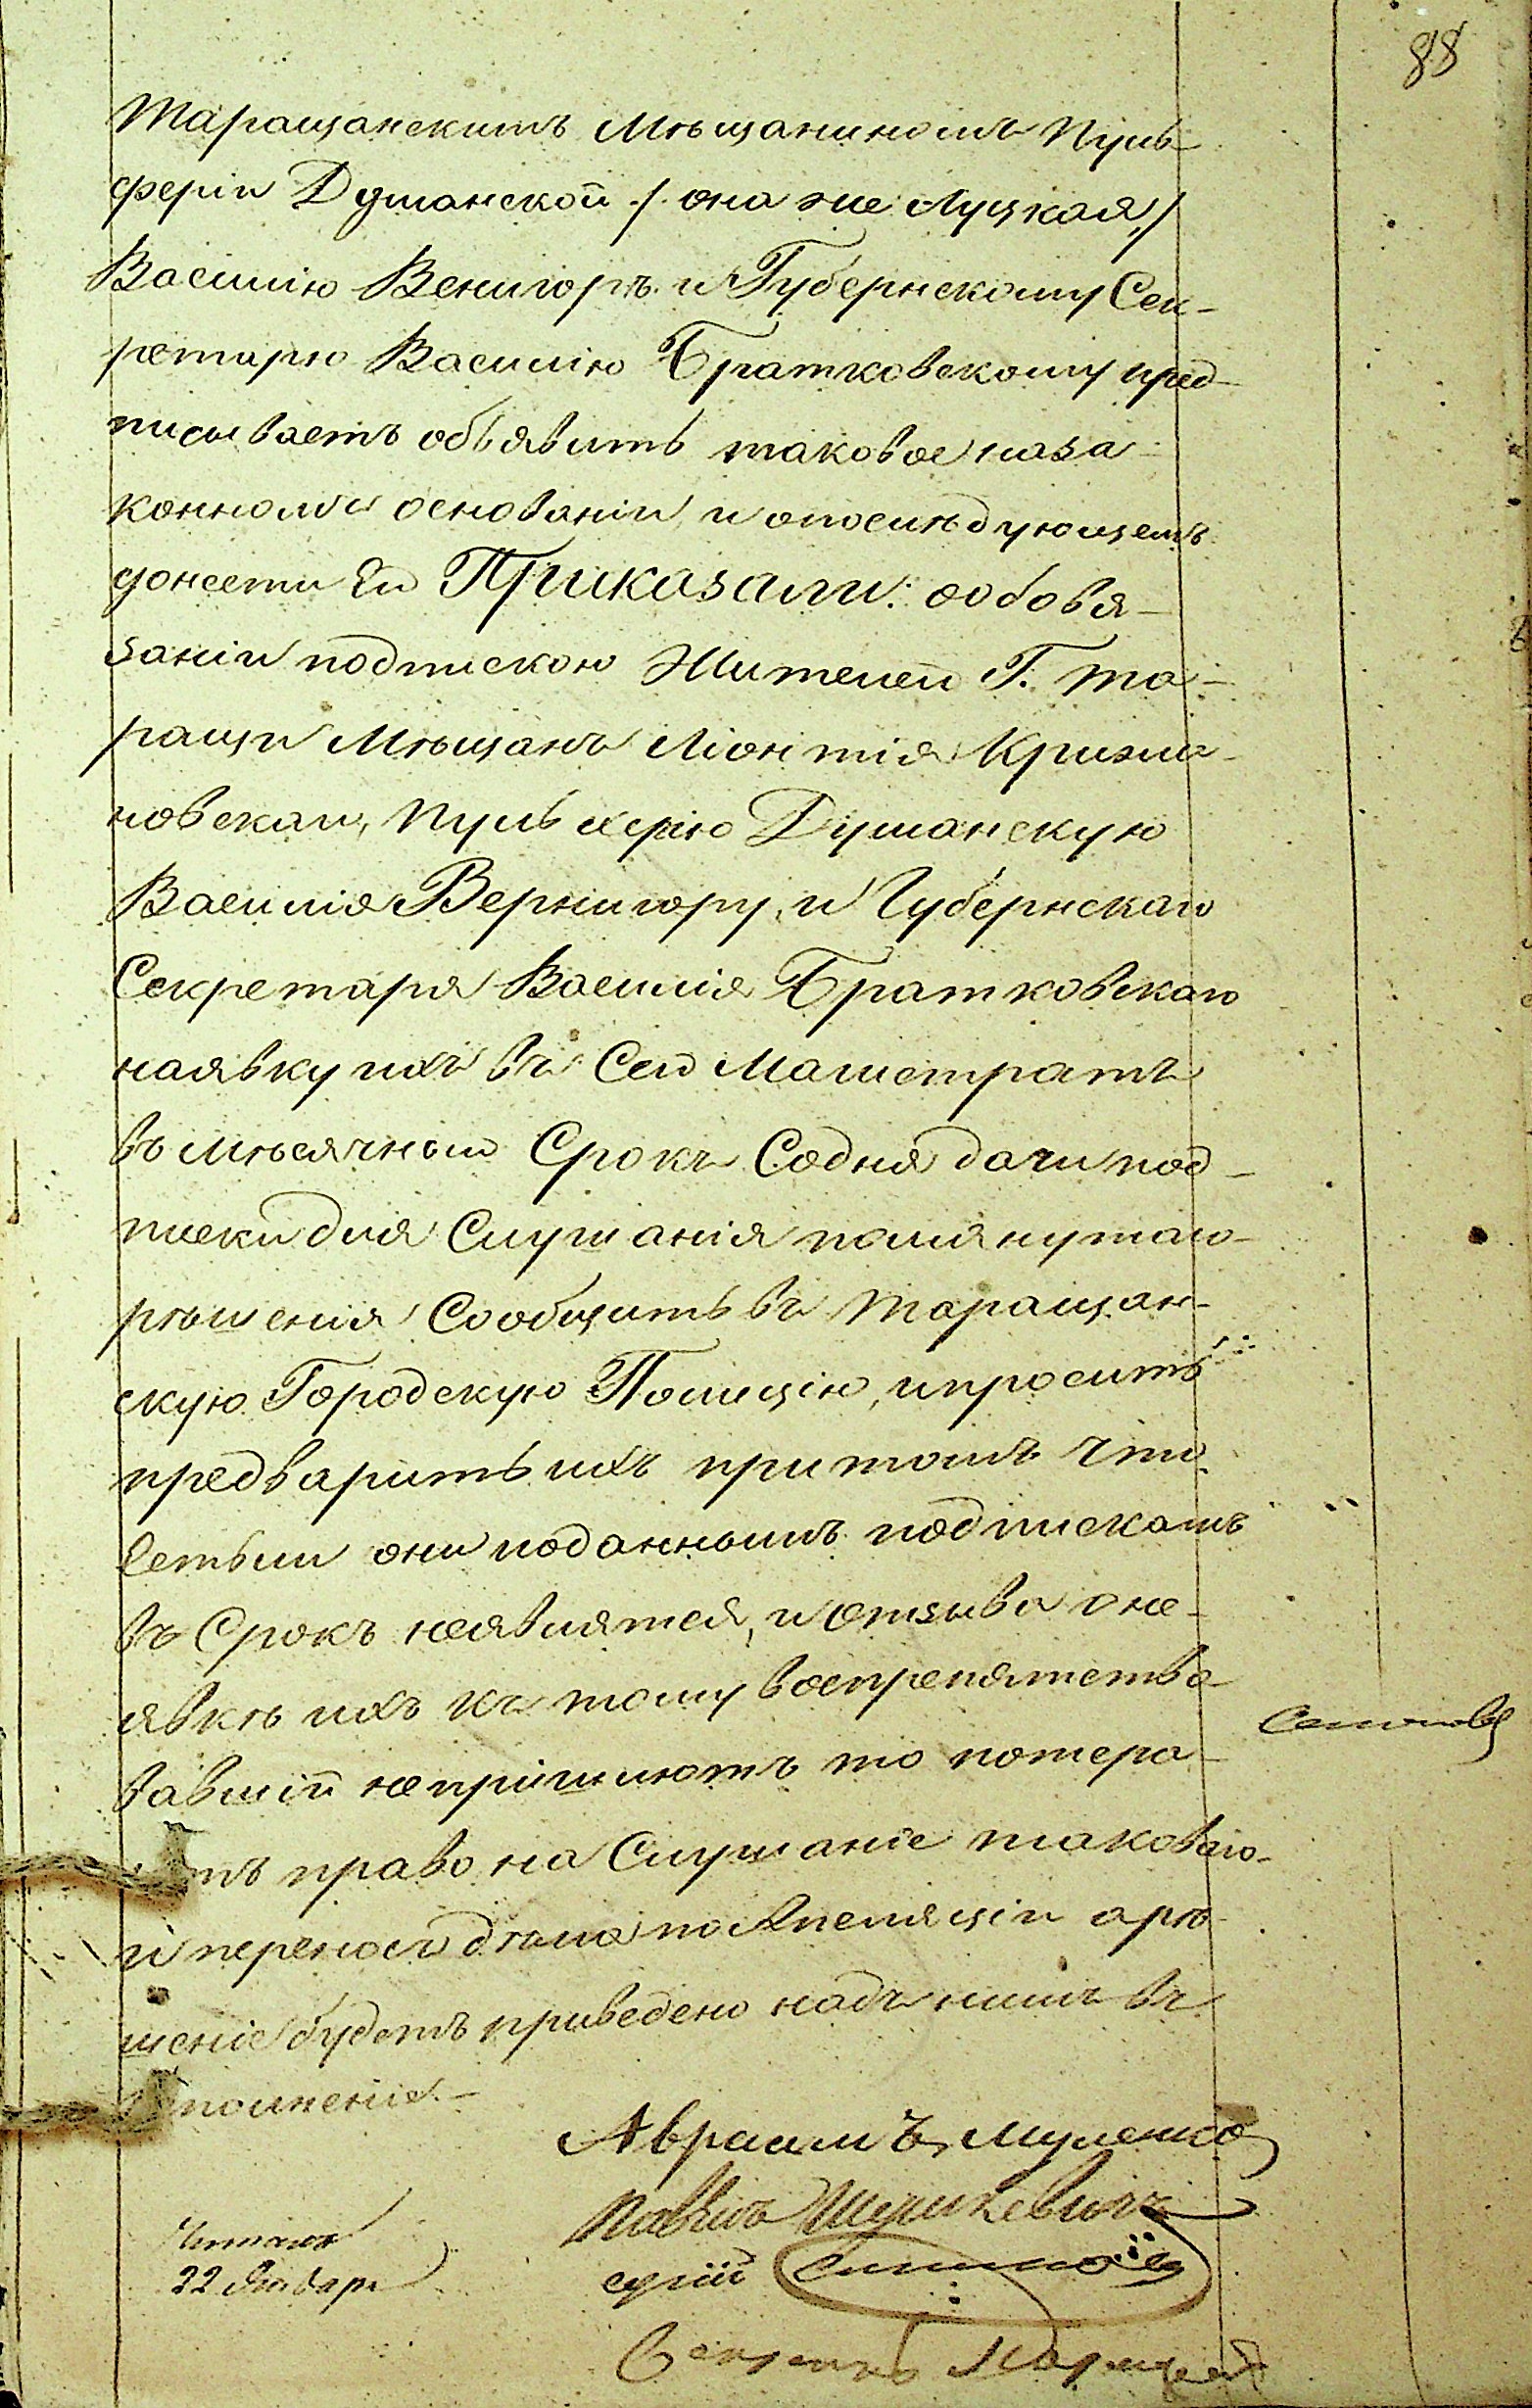 88
Таращанскимъ Мѣщаниномъ Пуль-
феріи Душанской ./. она же Луцкая ./
Василію Венигорѣ и Губернскому Сек-
ретарю Василію Братковскому пред-
писываетъ объявить таковое наза-
конномъ основаніи и опослѣдующемъ
донести Ей Приказали: ообовя-
заніи подпискою Жителей Г. Та-
ращи Мѣщанъ Ліонтія Кризма-
новскаи, Пульхерію Душанскую
Василія Вернигору, и Губернскаго
Секретаря Василія Братковскаго
наявку ихъ въ Сей Магистратъ
въ мѣсячный Срокъ Содня дачи под-
писки для Слушанія помянутаго
рѣшенія Сообщить въ Таращан-
скую Городскую Полицію, и просить
предварить ихъ при томъ что
Естьли они поданнымъ подпискамъ
въ Срокъ неявлятся, и отзыва оне-
явкѣ ихъ къ тому воспрепятство-
вавшій непришлютъ то потеря-
ютъ право на Слушаніе таковаго
и переносъ дѣла по Апеляціи арѣ-
шеніе будетъ приведено надъ нимъ въ
исполненіе.-
Авраамъ Мулешко
Павелъ Шуликевичъ
Читалъ
22 Января